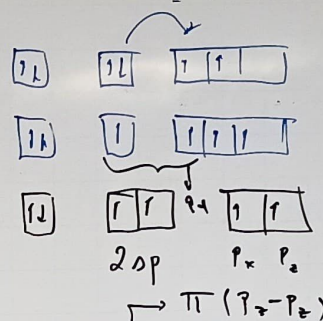 ⥮ ⥮ ↑ ↑
⥮ ↑ ↑ ↑ ↑
⥮ ↑ ↑ ↑ ↑
2sp Pₓ P_z
→ π (P_z-P_z)